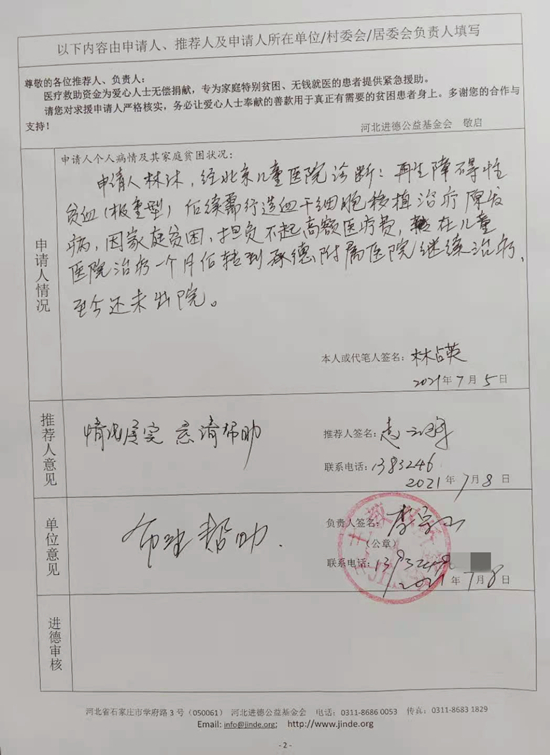 以下内容由申请人、推荐人及申请人所在单位/村委会/居委会负责人填写
尊敬的各位推荐人、负责人:
医疗救助资金为爱心人士无偿捐献，专为家庭特别贫困、无钱就医的患者提供紧急援助。
请您对求援申请人严格核实，务必让爱心人士奉献的善款用于真正有需要的贫困患者身上。多谢您的合作与
支持！
河北进德公益基金会 敬启
申请人情况
申请人个人病情及其家庭贫困状况:
申请人林沐，经北京儿童医院诊断：再生障碍性
贫血（极重型）后续需行造血干细胞移植治疗原发
病，因家庭贫困，担负不起高额医疗费，在儿童
医院治疗一个月后转到承德附属医院继续治疗，
至今还未出院。
本人或代笔人签名：林占英
2021年7月5日
推荐人意见
情况属实 恳请帮助
推荐人签名：
联系电话：1383246
2021年7月8日
单位意见
希望帮助.
负责人签名：李
（公章）
联系电话：
2021年7月8日
进德审核
河北省石家庄市学府路 3 号（050061） 河北进德公益基金会 电话：0311-8686 0053 传真：0311-8683 1829
Email: info@jinde.org; http://www.jinde.org
- 2 -